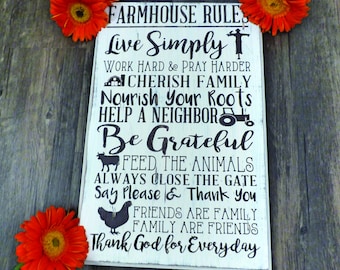 FARMHOUSE RULES
Live Simply
WORK HARD & PRAY HARDER
CHERISH FAMILY
Nourish Your Roots
HELP A NEIGHBOR
Be Grateful
FEED THE ANIMALS
ALWAYS CLOSE THE GATE
Say Please & Thank You
FRIENDS ARE FAMILY
FAMILY ARE FRIENDS
Thank God for Everyday